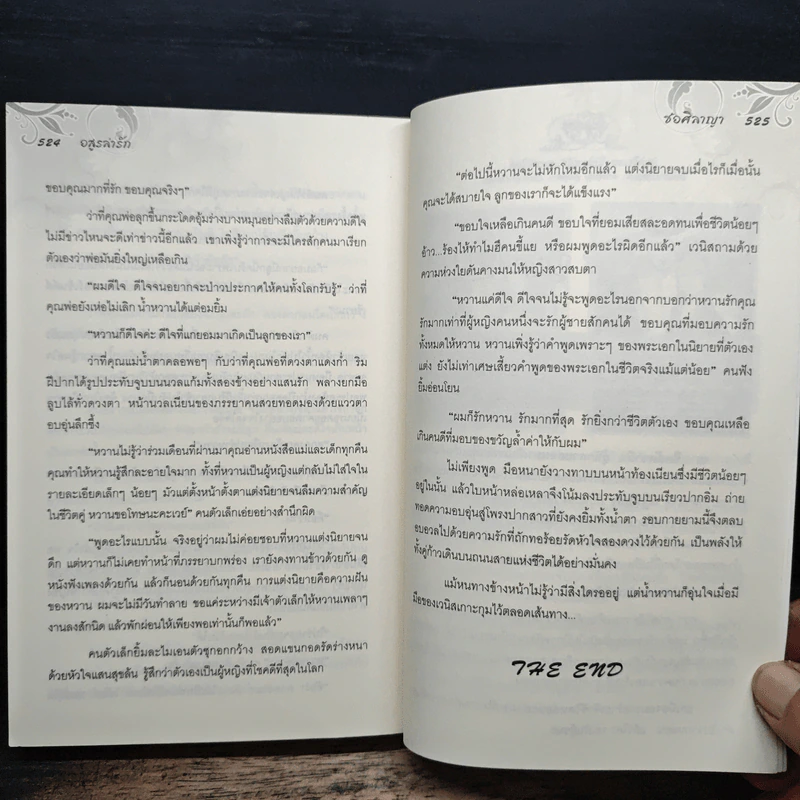 524 อสูรล่ารัก
ขอบคุณมากที่รัก ขอบคุณจริงๆ”
ว่าที่คุณพ่อลุกขึ้นกระโดดอุ้มร่างบางหมุนอย่างลืมตัวด้วยความดีใจ
ไม่มีข่าวไหนจะดีเท่าข่าวนี้อีกแล้ว เขาเพิ่งรู้ว่าการจะมีใครสักคนมาเรียก
ตัวเองว่าพ่อมันยิ่งใหญ่เหลือเกิน
“ผมดีใจ ดีใจจนอยากจะป่าวประกาศให้คนทั้งโลกรับรู้” ว่าที่
คุณพ่อยังเห่อไม่เลิก น้ำหวานได้แต่อมยิ้ม
“หวานก็ดีใจค่ะ ดีใจที่แกยอมมาเกิดเป็นลูกของเรา”
ว่าที่คุณแม่น้ำตาคลอพอๆ กับว่าที่คุณพ่อที่ดวงตาแดงก่ำ ริม
ฝีปากได้รูปประทับจูบบนนวลแก้มทั้งสองข้างอย่างแสนรัก พลางยกมือ
ลูบไล้ทั่วดวงตา หน้านวลเนียนของภรรยาคนสวยทอดมองด้วยแววตา
อบอุ่นลึกซึ้ง
“หวานไม่รู้ว่าร่วมเดือนที่ผ่านมาคุณอ่านหนังสือแม่และเด็กทุกคืน
คุณทำให้หวานรู้สึกละอายใจมาก ทั้งที่หวานเป็นผู้หญิงแต่กลับไม่ใส่ใจใน
รายละเอียดเล็กๆ น้อยๆ มัวแต่ตั้งหน้าตั้งตาแต่งนิยายจนลืมความสำคัญ
ในชีวิตคู่ หวานขอโทษนะคะเวย์” คนตัวเล็กเอ่ยอย่างสำนึกผิด
“พูดอะไรแบบนั้น จริงอยู่ว่าผมไม่ค่อยชอบที่หวานแต่งนิยายจน
ดึก แต่หวานก็ไม่เคยทำหน้าที่ภรรยาบกพร่อง เรายังคงทานข้าวด้วยกัน ดู
หนังฟังเพลงด้วยกัน แล้วก็นอนด้วยกันทุกคืน การแต่งนิยายคือความฝัน
ของหวาน ผมจะไม่มีวันทำลาย ขอแค่ระหว่างมีเจ้าตัวเล็กให้หวานเพลาๆ
งานลงสักนิด แล้วพักผ่อนให้เพียงพอเท่านั้นก็พอแล้ว”
คนตัวเล็กยิ้มละไมเอนตัวซุกอกกว้าง สอดแขนกอดรัดร่างหนา
ด้วยหัวใจแสนสุขล้น รู้สึกว่าตัวเองเป็นผู้หญิงที่โชคดีที่สุดในโลก
ช่อศิลาญา 525
“ต่อไปนี้หวานจะไม่หักโหมอีกแล้ว แต่งนิยายจบเมื่อไรก็เมื่อนั้น
คุณจะได้สบายใจ ลูกของเราก็จะได้แข็งแรง”
“ขอบใจเหลือเกินคนดี ขอบใจที่ยอมเสียสละอดทนเพื่อชีวิตน้อยๆ
อ้าว...ร้องไห้ทำไมฮึคนขี้แย หรือผมพูดอะไรผิดอีกแล้ว” เวนิสถามด้วย
ความห่วงใยดันคางมนให้หญิงสาวสบตา
“หวานแค่ดีใจ ดีใจจนไม่รู้จะพูดอะไรนอกจากบอกว่าหวานรักคุณ
รักมากเท่าที่ผู้หญิงคนหนึ่งจะรักผู้ชายสักคนได้ ขอบคุณที่มอบความรัก
ทั้งหมดให้หวาน หวานเพิ่งรู้ว่าคำพูดเพราะๆ ของพระเอกในนิยายที่ตัวเอง
แต่ง ยังไม่เท่าเศษเสี้ยวคำพูดของพระเอกในชีวิตจริงแม้แต่น้อย” คนฟัง
ยิ้มอ่อนโยน
“ผมก็รักหวาน รักมากที่สุด รักยิ่งกว่าชีวิตตัวเอง ขอบคุณเหลือ
เกินคนดีที่มอบของขวัญล้ำค่าให้กับผม”
ไม่เพียงพูด มือหนายังวางทาบบนหน้าท้องเนียนซึ่งมีชีวิตน้อยๆ
อยู่ในนั้น แล้วใบหน้าหล่อเหลาจึงโน้มลงประทับจูบบนเรียวปากอิ่ม ถ่าย
ทอดความอบอุ่นสู่โพรงปากสาวที่ยังคงยิ้มทั้งน้ำตา รอบกายยามนี้จึงตลบ
อบอวลไปด้วยความรักที่ถักทอร้อยรัดหัวใจสองดวงไว้ด้วยกัน เป็นพลังให้
ทั้งคู่ก้าวเดินบนถนนสายแห่งชีวิตได้อย่างมั่นคง
แม้หนทางข้างหน้าไม่รู้ว่ามีสิ่งใดรออยู่ แต่น้ำหวานก็อุ่นใจเมื่อมี
มือของเวนิสเกาะกุมไว้ตลอดเส้นทาง...
THE END